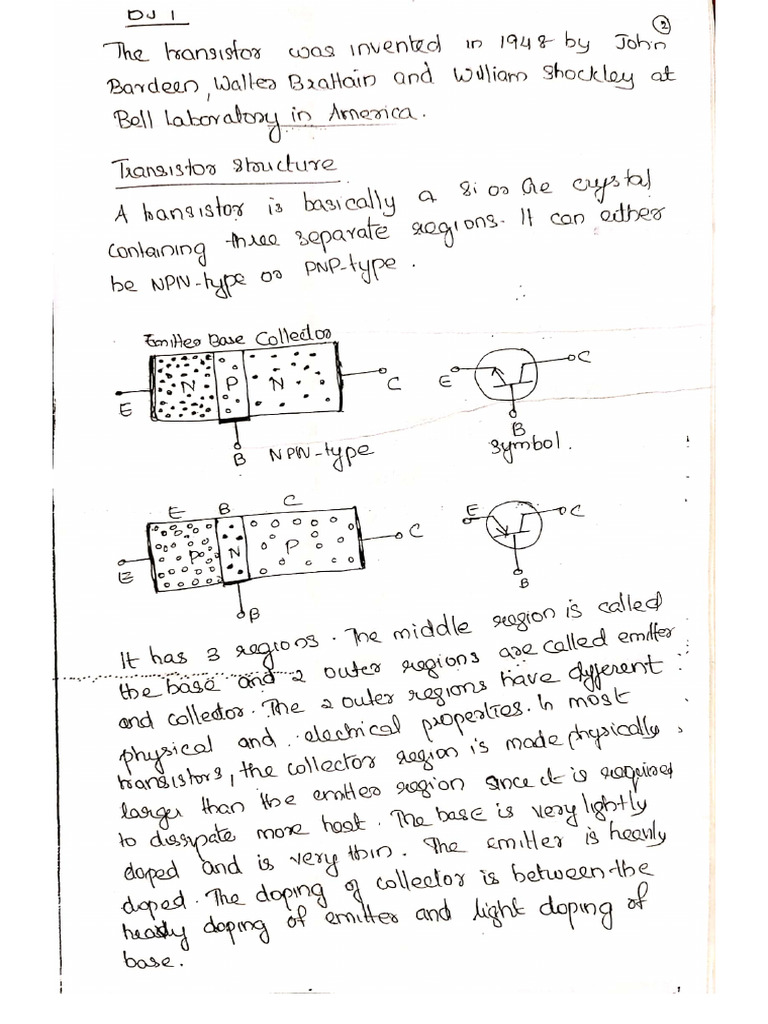 DJ 1
2
The transistor was invented in 1948 by John
Bardeen, Walter Brattain and William Shockley at
Bell Laboratory in America.
Transistor structure
A transistor is basically a Si or Ge crystal
containing three separate regions. It can either
be NPN-type or PNP-type.
Emitter Base Collector
N P N
E
C
B
NPN-type
E
C
B
symbol.
E B C
P N P
E
C
B
E
C
B
It has 3 regions. The middle region is called
the base and 2 outer regions are called emitter
and collector. The 2 outer regions have different
physical and electrical properties. In most
transistors, the collector region is made physically
larger than the emitter region since it is required
to dissipate more heat. The base is very lightly
doped and is very thin. The emitter is heavily
doped. The doping of collector is between the
heavy doping of emitter and light doping of
base.